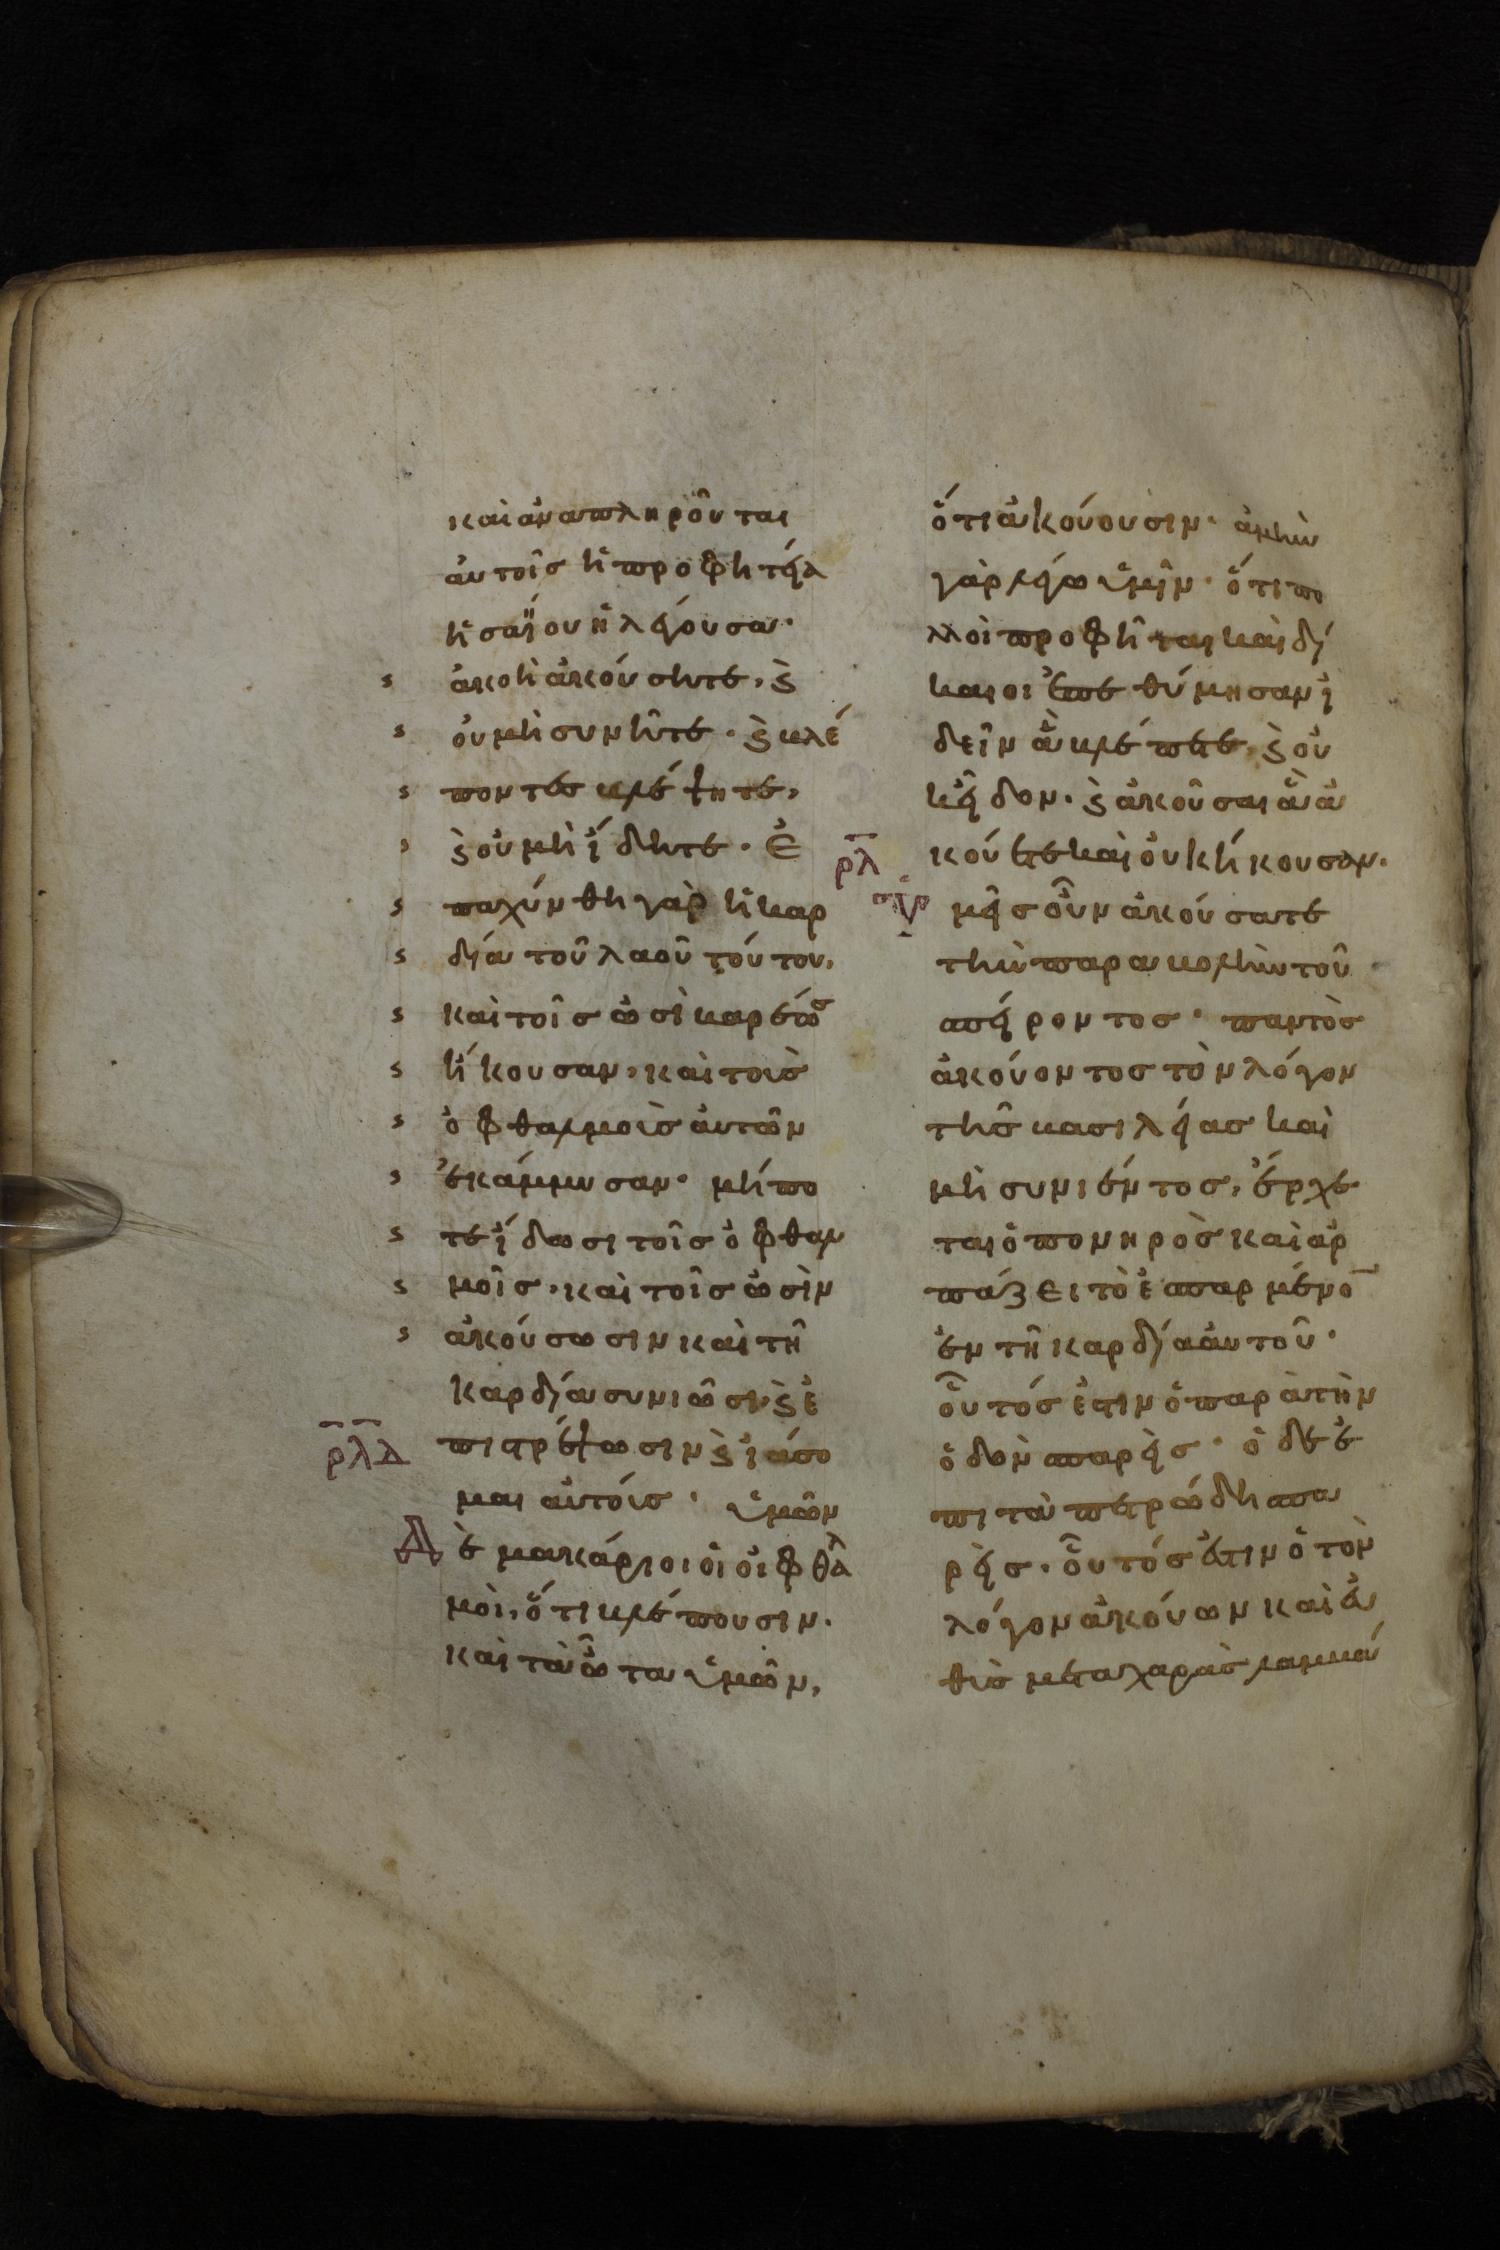 καὶ ἀναπληροῦται
αὐτοῖς ἡ προφητεία
ἡσαΐου ἡ λέγουσα·
ἀκοῇ ἀκούσητε, ϗ
οὐ μὴ συνῆτε· ϗ βλέ
ποντες βλέψητε,
ϗ οὐ μὴ ἴδητε· Ἐ
παχύνθη γὰρ ἡ καρ
δία τοῦ λαοῦ τούτου,
καὶ τοῖς ὠσὶ βαρέως
ἤκουσαν, καὶ τοὺς
ὀφθαλμοὺς αὐτῶν
ἐκάμμυσαν· μήπο
τε ἴδωσι τοῖς ὀφθαλ
μοῖς, καὶ τοῖς ὠσὶν
ἀκούσωσιν καὶ τῆ
καρδία συνιῶσι, ϗ ἐ
ρλδ πιστρέψωσιν ϗ ἰάσο
μαι αὐτούς· ὑμῶν
Δὲ μακάριοι οἱ ὀφθαλ
μοὶ, ὅτι βλέπουσιν·
καὶ τὰ ὦτα ὑμῶν,
ὅτι ἀκούουσιν· ἀμὴν
γὰρ λέγω ὑμῖν· ὅτι πο
λλοὶ προφῆται καὶ δί
καιοι ἐπεθύμησαν ἰ
δεῖν ἃ βλέπετε, ϗ οὐ
κ εἶδον· ϗ ἀκοῦσαι ἃ ἀ
ρλ κούετε καὶ οὐκ ἤκουσαν·
Ὑμεῖς οὖν ἀκούσατε
τὴν παραβολὴν τοῦ
σπείροντος· παντὸς
ἀκούοντος τὸν λόγον
τῆς βασιλείας καὶ
μὴ συνιέντος, ἔρχε
ται ὁ πονηρὸς καὶ ἁρ
πάζει τὸ ἐσπαρμένον
ἐν τῆ καρδία αὐτοῦ·
οὗτός ἐστιν ὁ παρὰ τὴν
ὁδὸν σπαρείς· ὁ δὲ ἐ
πὶ τὰ πετρώδη σπα
ρείς· οὗτός ἐστιν ὁ τὸν
λόγον ἀκούων καὶ εὐ
θὺς μετα χαρὰς λαμβά